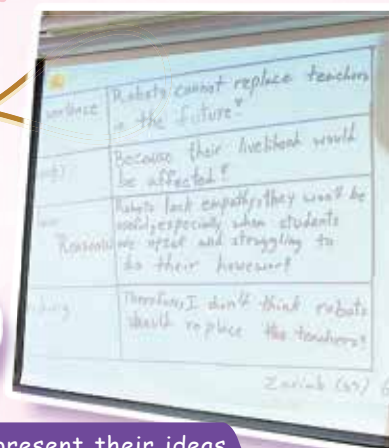 Robots cannot replace teachers
in the future?
Because their livelihood would
be affected?
Robots lack empathy, they won't be
useful, especially when students
Reasons are upset and struggling to
do their homework
Therefore, I don't think robots
should replace the teachers?
Zainab (
present their ideas